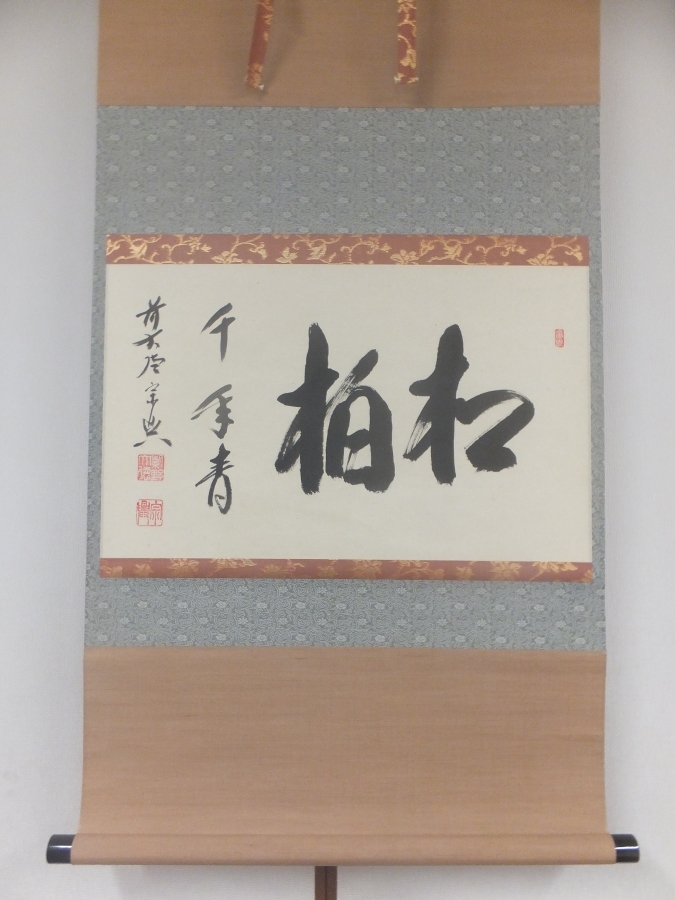 松柏
千年青
前大徳宗典